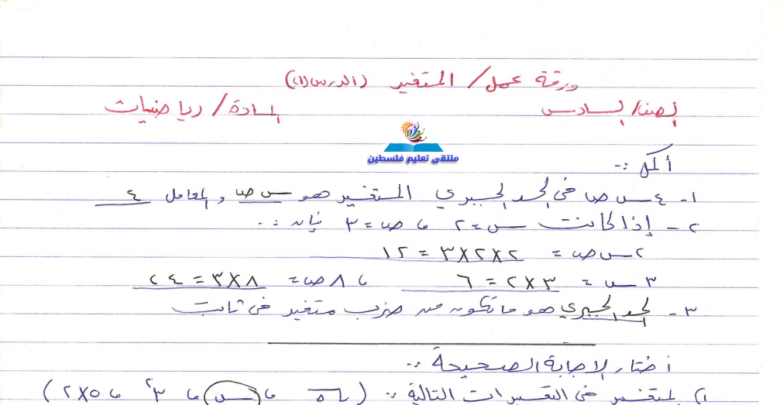 ورقة عمل / المتغير (الدرس(١))
الصف/ السادس
المادة / رياضيات
ملتقى تعليم فلسطين
أكمل :-
١- ٤ س ص في الحد الجبري المتغير هو س ص و المعامل ٤
٢- إذا كانت س = ٢ ، ص = ٣ فإن :-
٢ س ص = ٢×٢×٣ = ١٢
٣ س = ٣×٢ = ٦ ، ٨ ص = ٨×٣ = ٢٤
٣- الحد الجبري هو ما تكون من ضرب متغير في ثابت
اختار الإجابة الصحيحة :-
١) المتغير في التعبيرات التالية :- ( ، س ، ٣ ، ٥×٢ )